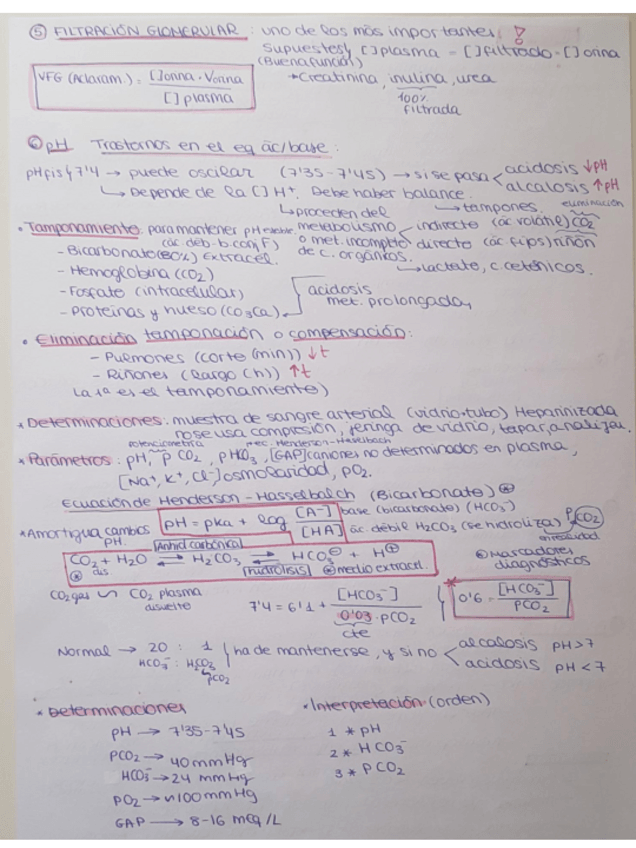 ⑤ FILTRACIÓN GLOMERULAR: uno de los más importantes!
Supuestos [ ]plasma = [ ]filtrado = [ ]orina
(Buena función)
VFG (Aclaram.) = [ ]orina · Vorina / [ ]plasma
→ Creatinina, inulina, urea
100% filtrada
⑥ pH Trastornos en el eq ác/base:
pH fisiol 7'4 → puede oscilar (7'35-7'45) → si se pasa < acidosis ↓pH
alcalosis ↑pH
↳ Depende de la [ ]H⁺. Debe haber balance.
↳ proceden del ↳ tampones. eliminación
• Tamponamiento: para mantener pH estable metabolismo < indirecto (ác volátil) CO2
(ác déb-b.conj) o met. incompleto directo (ác fijos) riñón
- Bicarbonato (80%) Extracel. de c. orgánicos. ↳ lactato, c. cetónicos.
- Hemoglobina (CO2)
- Fosfato (intracelular) acidosis
- Proteínas y hueso (CO3Ca) met. prolongada
• Eliminación tamponación o compensación:
- Pulmones (corto (min)) ↓t
- Riñones (largo (h)) ↑t
La 1ª es el tamponamiento)
* Determinaciones: muestra de sangre arterial (vidrio+tubo) Heparinizada
no se usa compresión, jeringa de vidrio, tapar, analizar.
potenciometría → ec. Henderson-Hasselbach
* Parámetros: pH, pCO2, pHCO3, [GAP] aniones no determinados en plasma,
[Na⁺, K⁺, Cl⁻] osmolaridad, pO2.
Ecuación de Henderson-Hasselbalch (Bicarbonato) ⊛
* Amortigua cambios pH. pH = pKa + log [A-] / [HA] base (bicarbonato) (HCO3⁻)
ác. débil H2CO3 (se hidroliza) PCO2
Anhid carbónica
CO2 + H2O ⇌ H2CO3 ⇌ HCO3⊖ + H⊕
⊛ dis hidrólisis ⊛ medio extracel.
⊛ Marcadores diagnósticos
CO2 gas ∽ CO2 plasma disuelto
7'4 = 6'1 + [HCO3⁻] / 0'03 · PCO2
cte
* 0'6 = [HCO3⁻] / PCO2
Normal → 20 : 1 ha de mantenerse, y si no < alcalosis pH>7
HCO3⁻ : H2CO3 acidosis pH<7
↳ pCO2
* Determinaciones
pH → 7'35-7'45
PCO2 → 40 mmHg
HCO3⁻ → 24 mmHg
PO2 → ∽100 mmHg
GAP → 8-16 meq/L
* Interpretación (orden)
1 * pH
2 * HCO3⁻
3 * PCO2